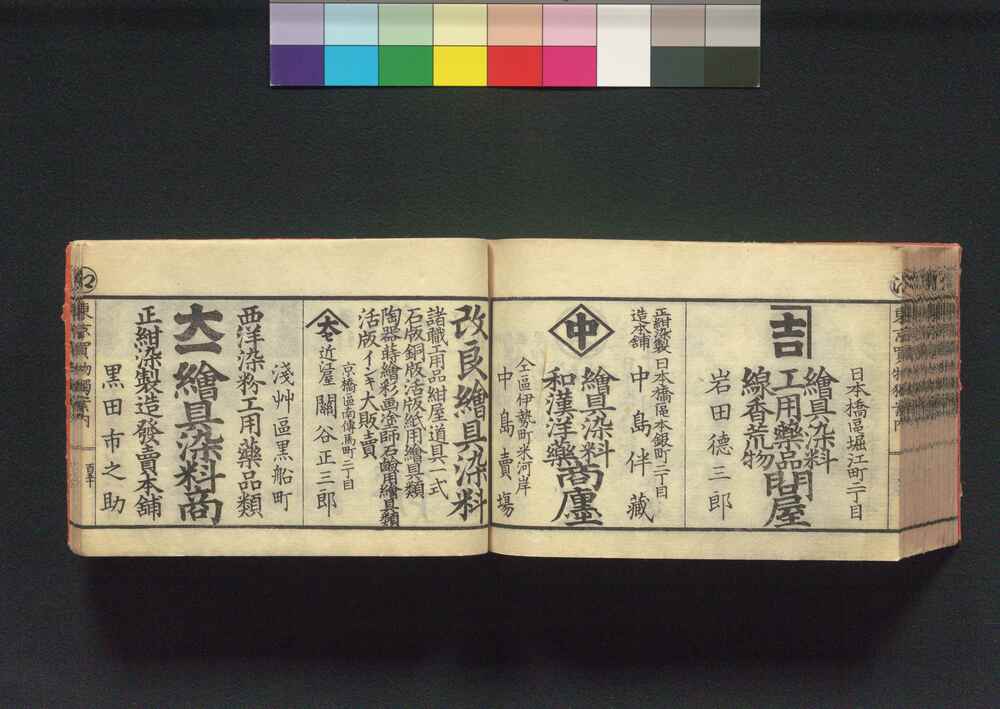 日本橋區堀江町二丁目
吉
繪具染料
工用藥品問屋
線香荒物
岩田德三郎
正紺染製
造本舗
日本橋區本銀町二丁目
中島伴藏
中
繪具染料
和漢洋藥
商廛
仝區伊勢町米河岸
中島賣場
改良繪具染料
諸職工用品紺屋道具一式
石版銅版活版紙用繪具類
陶器蒔繪彩画塗師石鹼用繪具類
活版インキ大販賣
京橋區南傳馬町二丁目
近江屋
關谷正三郎
淺艸區黑船町
西洋染粉工用藥品類
大一
繪具染料商
正紺染製造發賣本舗
黒田市之助
東京買物獨案内